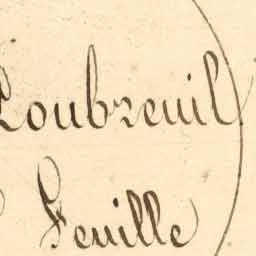 Loubreuil
Feuille